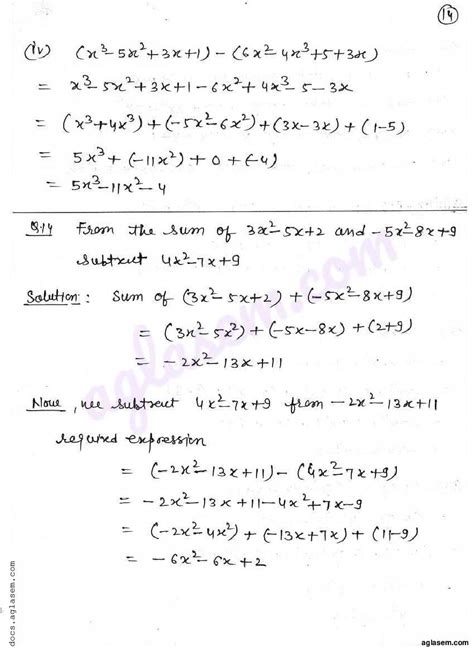 14
(iv) (x³-5x²+3x+1) - (6x²-4x³+5+3x)
= x³-5x²+3x+1-6x²+4x³-5-3x
= (x³+4x³)+(-5x²-6x²)+(3x-3x)+(1-5)
= 5x³+(-11x²)+0+(-4)
= 5x³-11x²-4
Q.14 From the sum of 3x²-5x+2 and -5x²-8x+9
subtract 4x²-7x+9
Solution: Sum of (3x²-5x+2)+(-5x²-8x+9)
= (3x²-5x²)+(-5x-8x)+(2+9)
= -2x²-13x+11
Now, we subtract 4x²-7x+9 from -2x²-13x+11
required expression
= (-2x²-13x+11)-(4x²-7x+9)
= -2x²-13x+11-4x²+7x-9
= (-2x²-4x²)+(-13x+7x)+(11-9)
= -6x²-6x+2
aglasem.com
docs.aglasem.com
aglasem.com